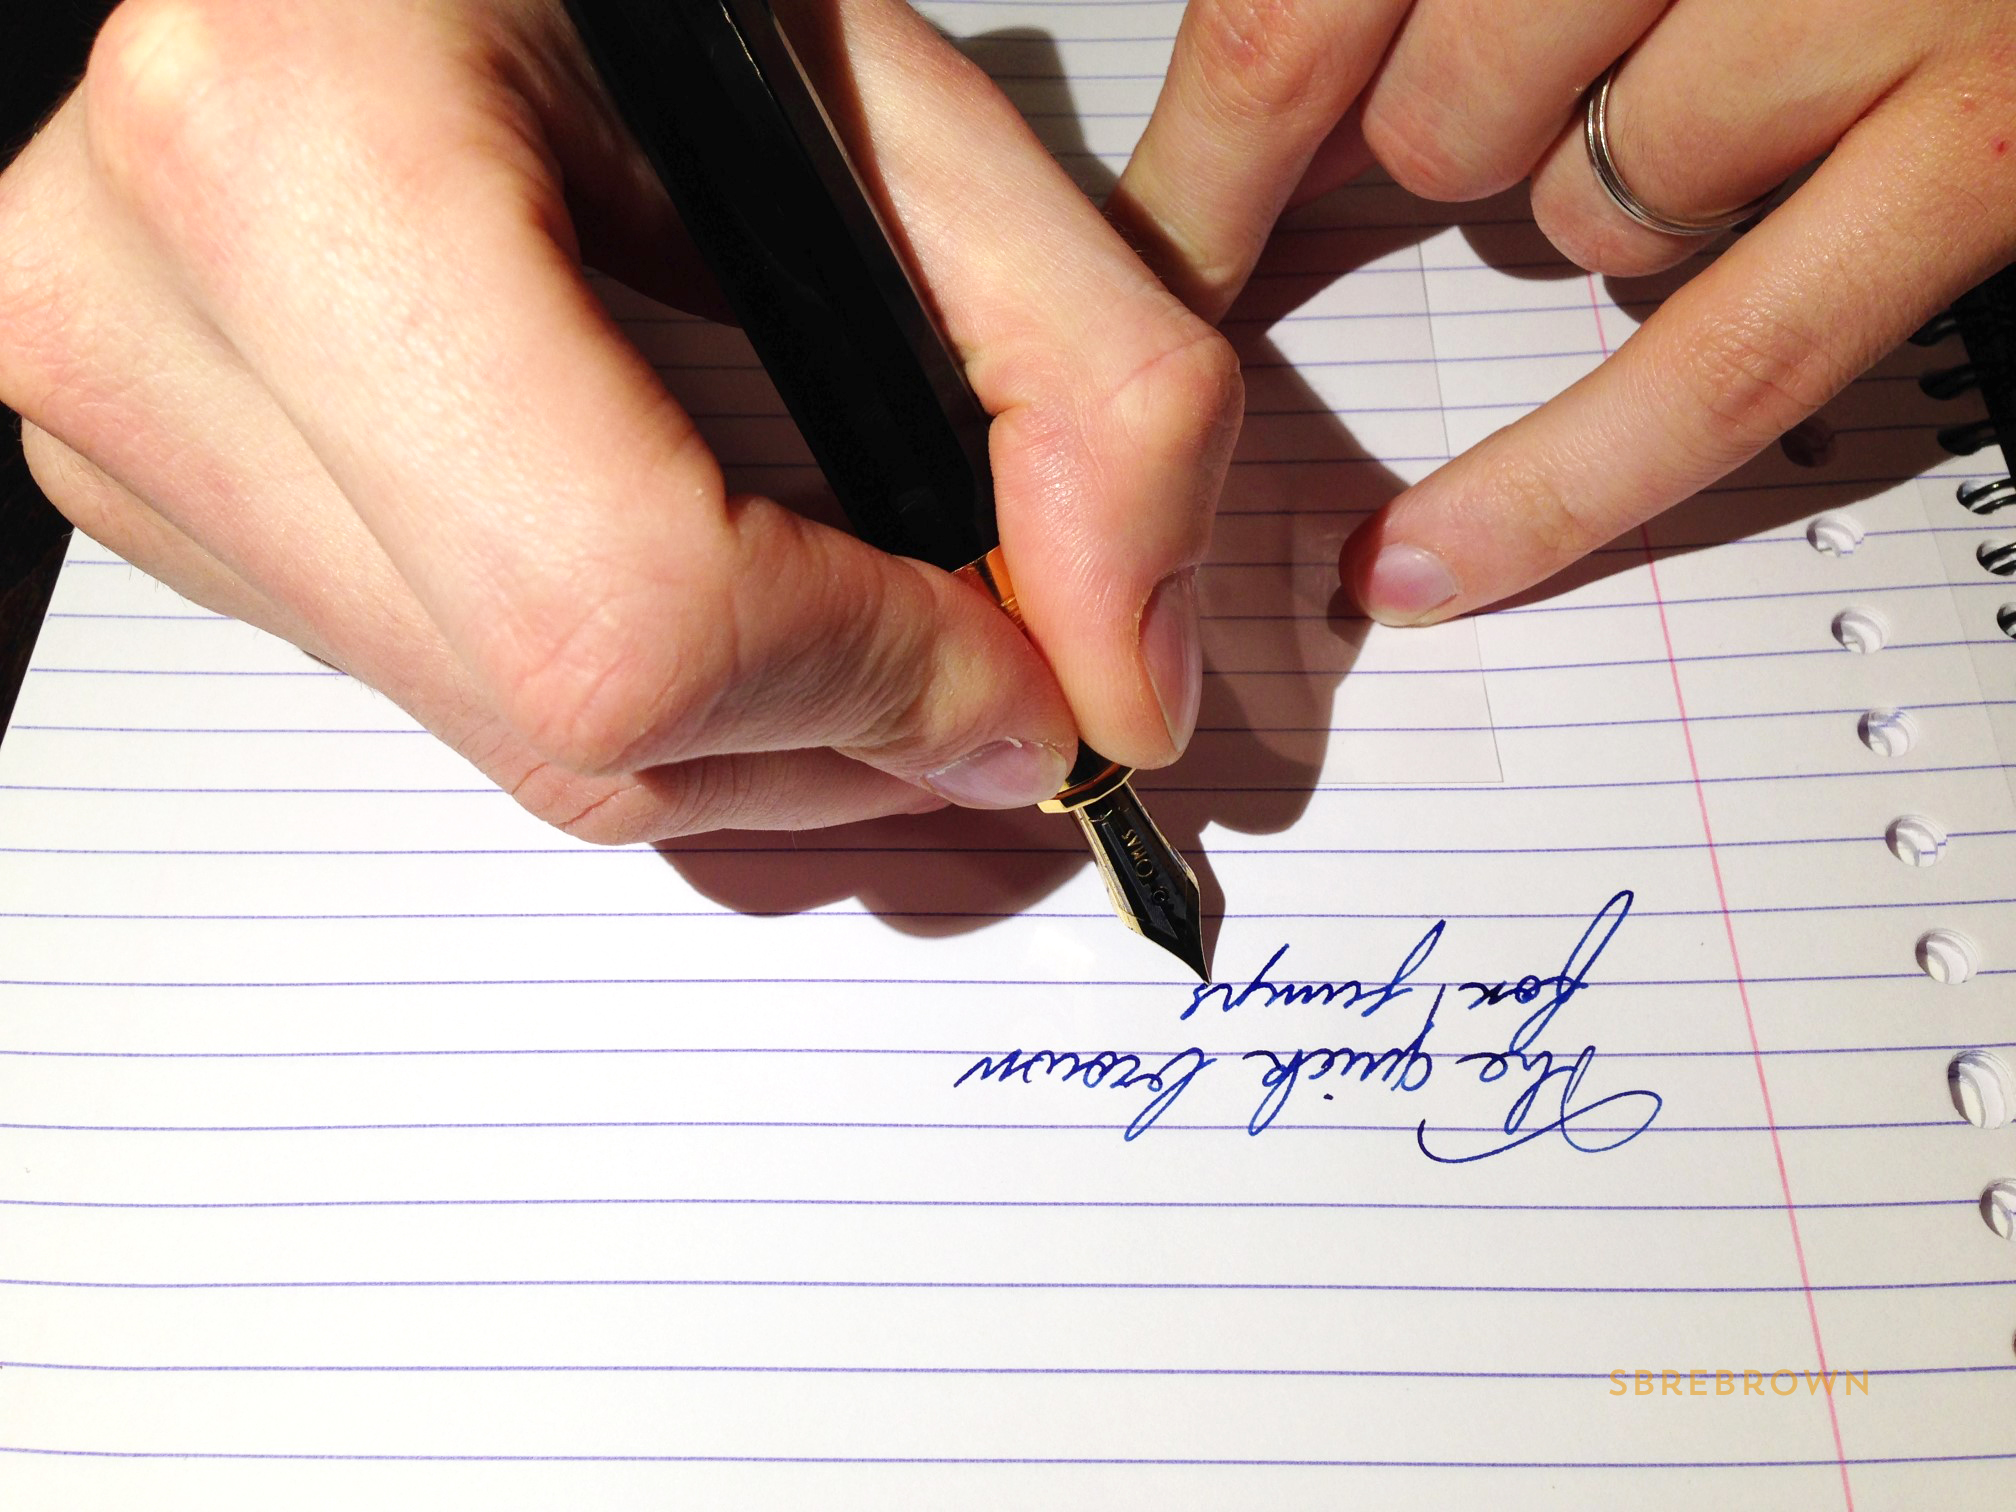 The quick brown
fox jumps
OMAS
SBREBROWN